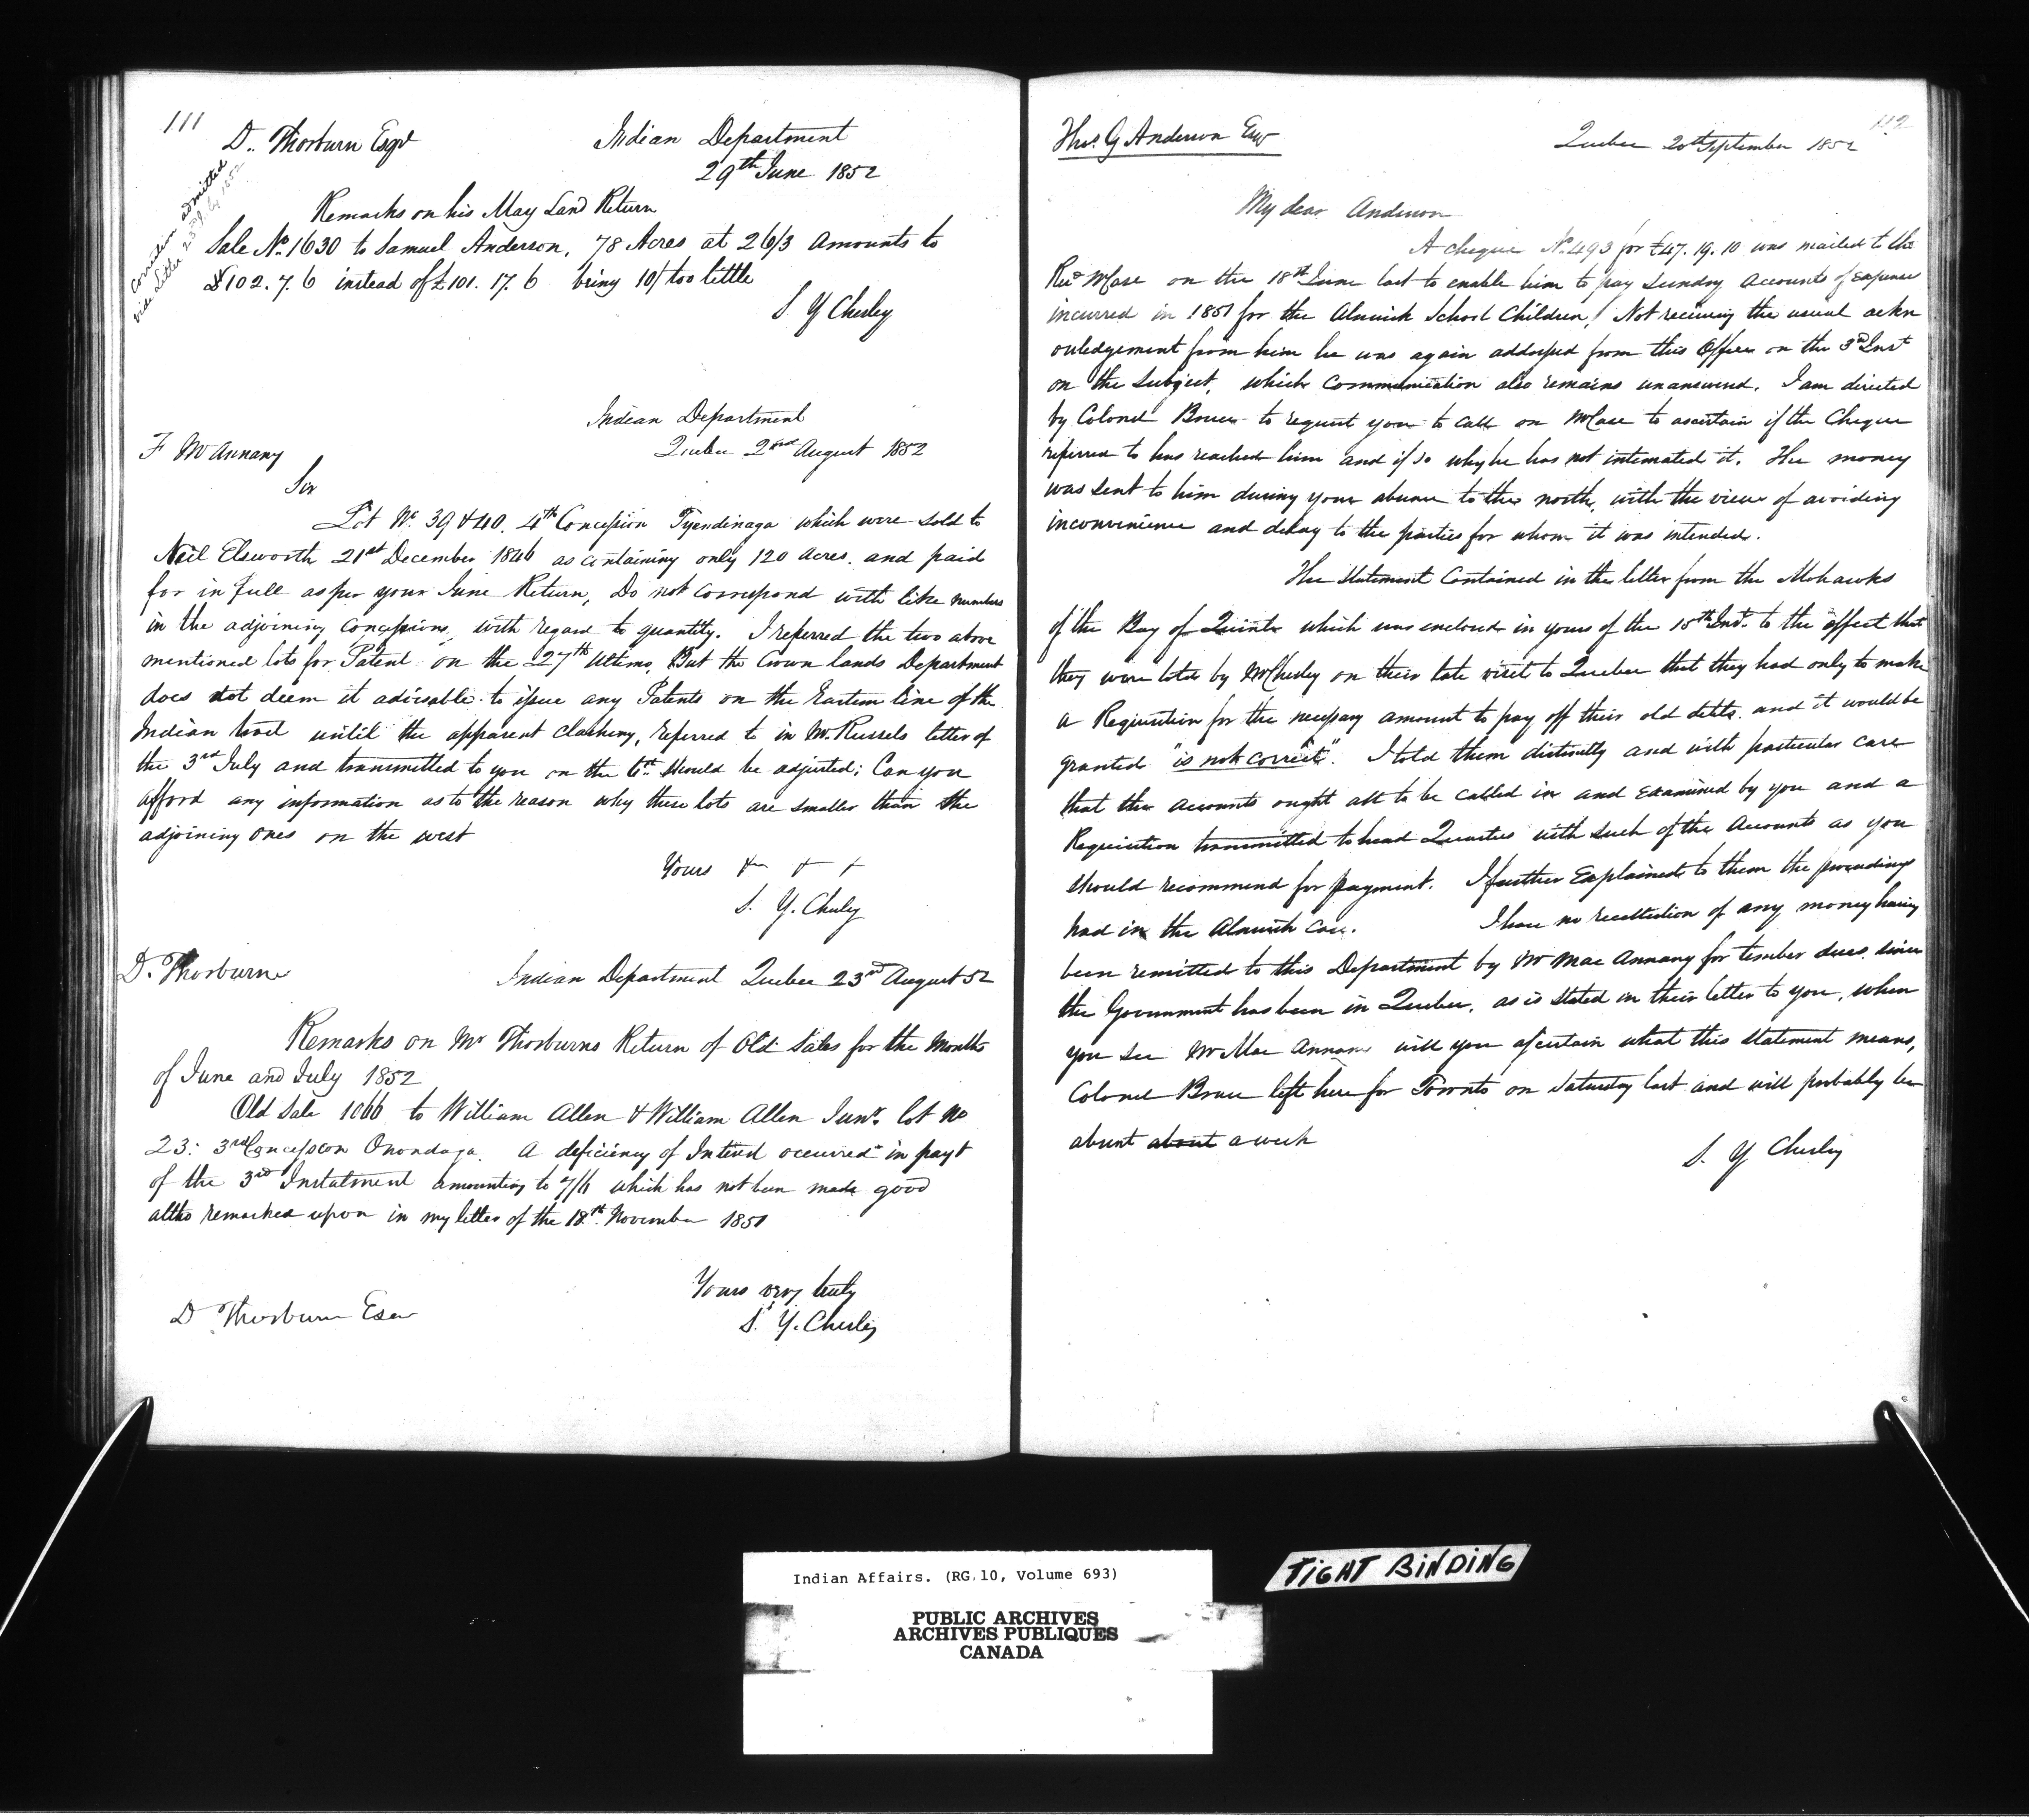 111
D. Thorburn Esqr
Indian Department
29th June 1852
Correction admitted
vide Letter 23d July 1852
Remarks on his May Land Return
Sale No. 1630 to Samuel Anderson, 78 Acres at 26/3 amounts to
£102. 7. 6 instead of £101. 17. 6 being 10/ too little
S Y Chesley
Indian Department
Quebec 2nd August 1852
F McAnnany
Sir
Lot No. 39 & 40. 4th Concession Tyendinaga which were sold to
Neil Elsworth 21st December 1846 as containing only 120 acres. and paid
for in full as per your June Return, Do not correspond with like numbers
in the adjoining concessions, with regard to quantity. I referred the two above
mentioned lots for Patent on the 27th Ultimo, But the Crown lands Department
does not deem it advisable to issue any Patents on the Eastern line of the
Indian land until the apparent clashing, referred to in Mr. Russels letter of
the 3rd July and transmitted to you on the 6th should be adjusted; Can you
afford any information as to the reason why these lots are smaller than the
adjoining ones on the west
Yours &c + +
S. Y. Chesley
D. Thorburn
Indian Department Quebec 23rd August 52
Remarks on Mr Thorburns Return of Old Sales for the Months
of June and July 1852
Old Sale 1066 to William Allen & William Allen Junr. lot No
23: 3rd Concession Onondaga. A deficiency of Interest occurred in payt
of the 3rd Instalment amounting to 7/6 which has not been made good
altho remarked upon in my letter of the 18th. November 1851
Yours very truly
S. Y. Chesley
D Thorburn Esqr
112
Thos. G Anderson Esqr
Quebec 20th September 1852
My dear Anderson
A cheque No. 493 for £47. 19. 10 was mailed to the
Revd Mr Case on the 18th June last to enable him to pay Sundry Accounts of Expense
incurred in 1851 for the Alnwick School Children, Not receiving the usual ackn
owledgement from him he was again addressed from this Office on the 3rd Inst
on the Subject, which communication also remains unanswered. I am directed
by Colonel Bruce to request you to call on Mr Case to ascertain if the Cheque
referred to has reached him and if so why he has not intimated it. The money
was sent to him during your absence to the north, with the view of avoiding
inconvenience and delay to the parties for whom it was intended.
The Statement Contained in the letter from the Mohawks
of the Bay of Quinte which was enclosed in yours of the 15th Inst. to the effect that
they were told by Mr Chesley on their late visit to Quebec that they had only to make
a Requisition for the necessary amount to pay off their old debts. and it would be
granted "is not correct". I told them distinctly and with particular care
that the accounts ought all to be called in and examined by you and a
Requisition transmitted to head Quarters with such of the Accounts as you
should recommend for payment. I further Explained to them the proceedings
had in the Alnwick case. I have no recollection of any money having
been remitted to this Department by Mr Mac Annany for timber dues, since
the Government has been in Quebec, as is stated in their letter to you, when
you see Mr Mac Annany will you ascertain what this statement means,
Colonel Bruce left here for Toronto on Saturday last and will probably be
absent about a week
S. Y Chesley
Indian Affairs. (RG 10, Volume 693)
PUBLIC ARCHIVES
ARCHIVES PUBLIQUES
CANADA
TIGHT BINDING